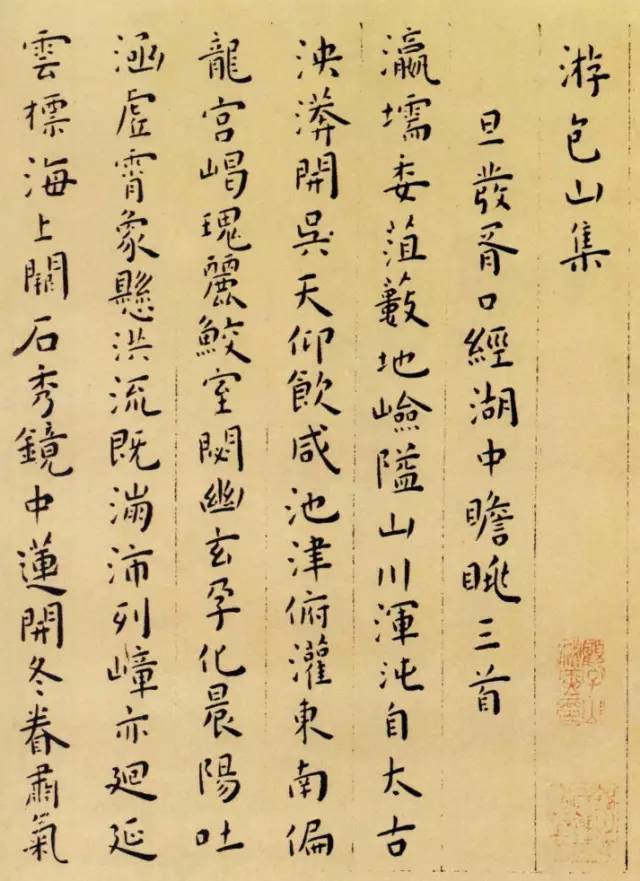 游包山集
旦發胥口經湖中瞻眺三首
瀛壖委菹藪地嶮隘山川渾沌自太古
泱漭開吳天仰飲咸池津俯灌東南偏
龍宮嵑瑰麗鮫室閟幽玄孕化晨陽吐
涵虛霄象懸洪流既滿沛列嶂亦廻延
雲標海上闕石秀鏡中蓮開冬眷肅氣
顧子山
秘笈印